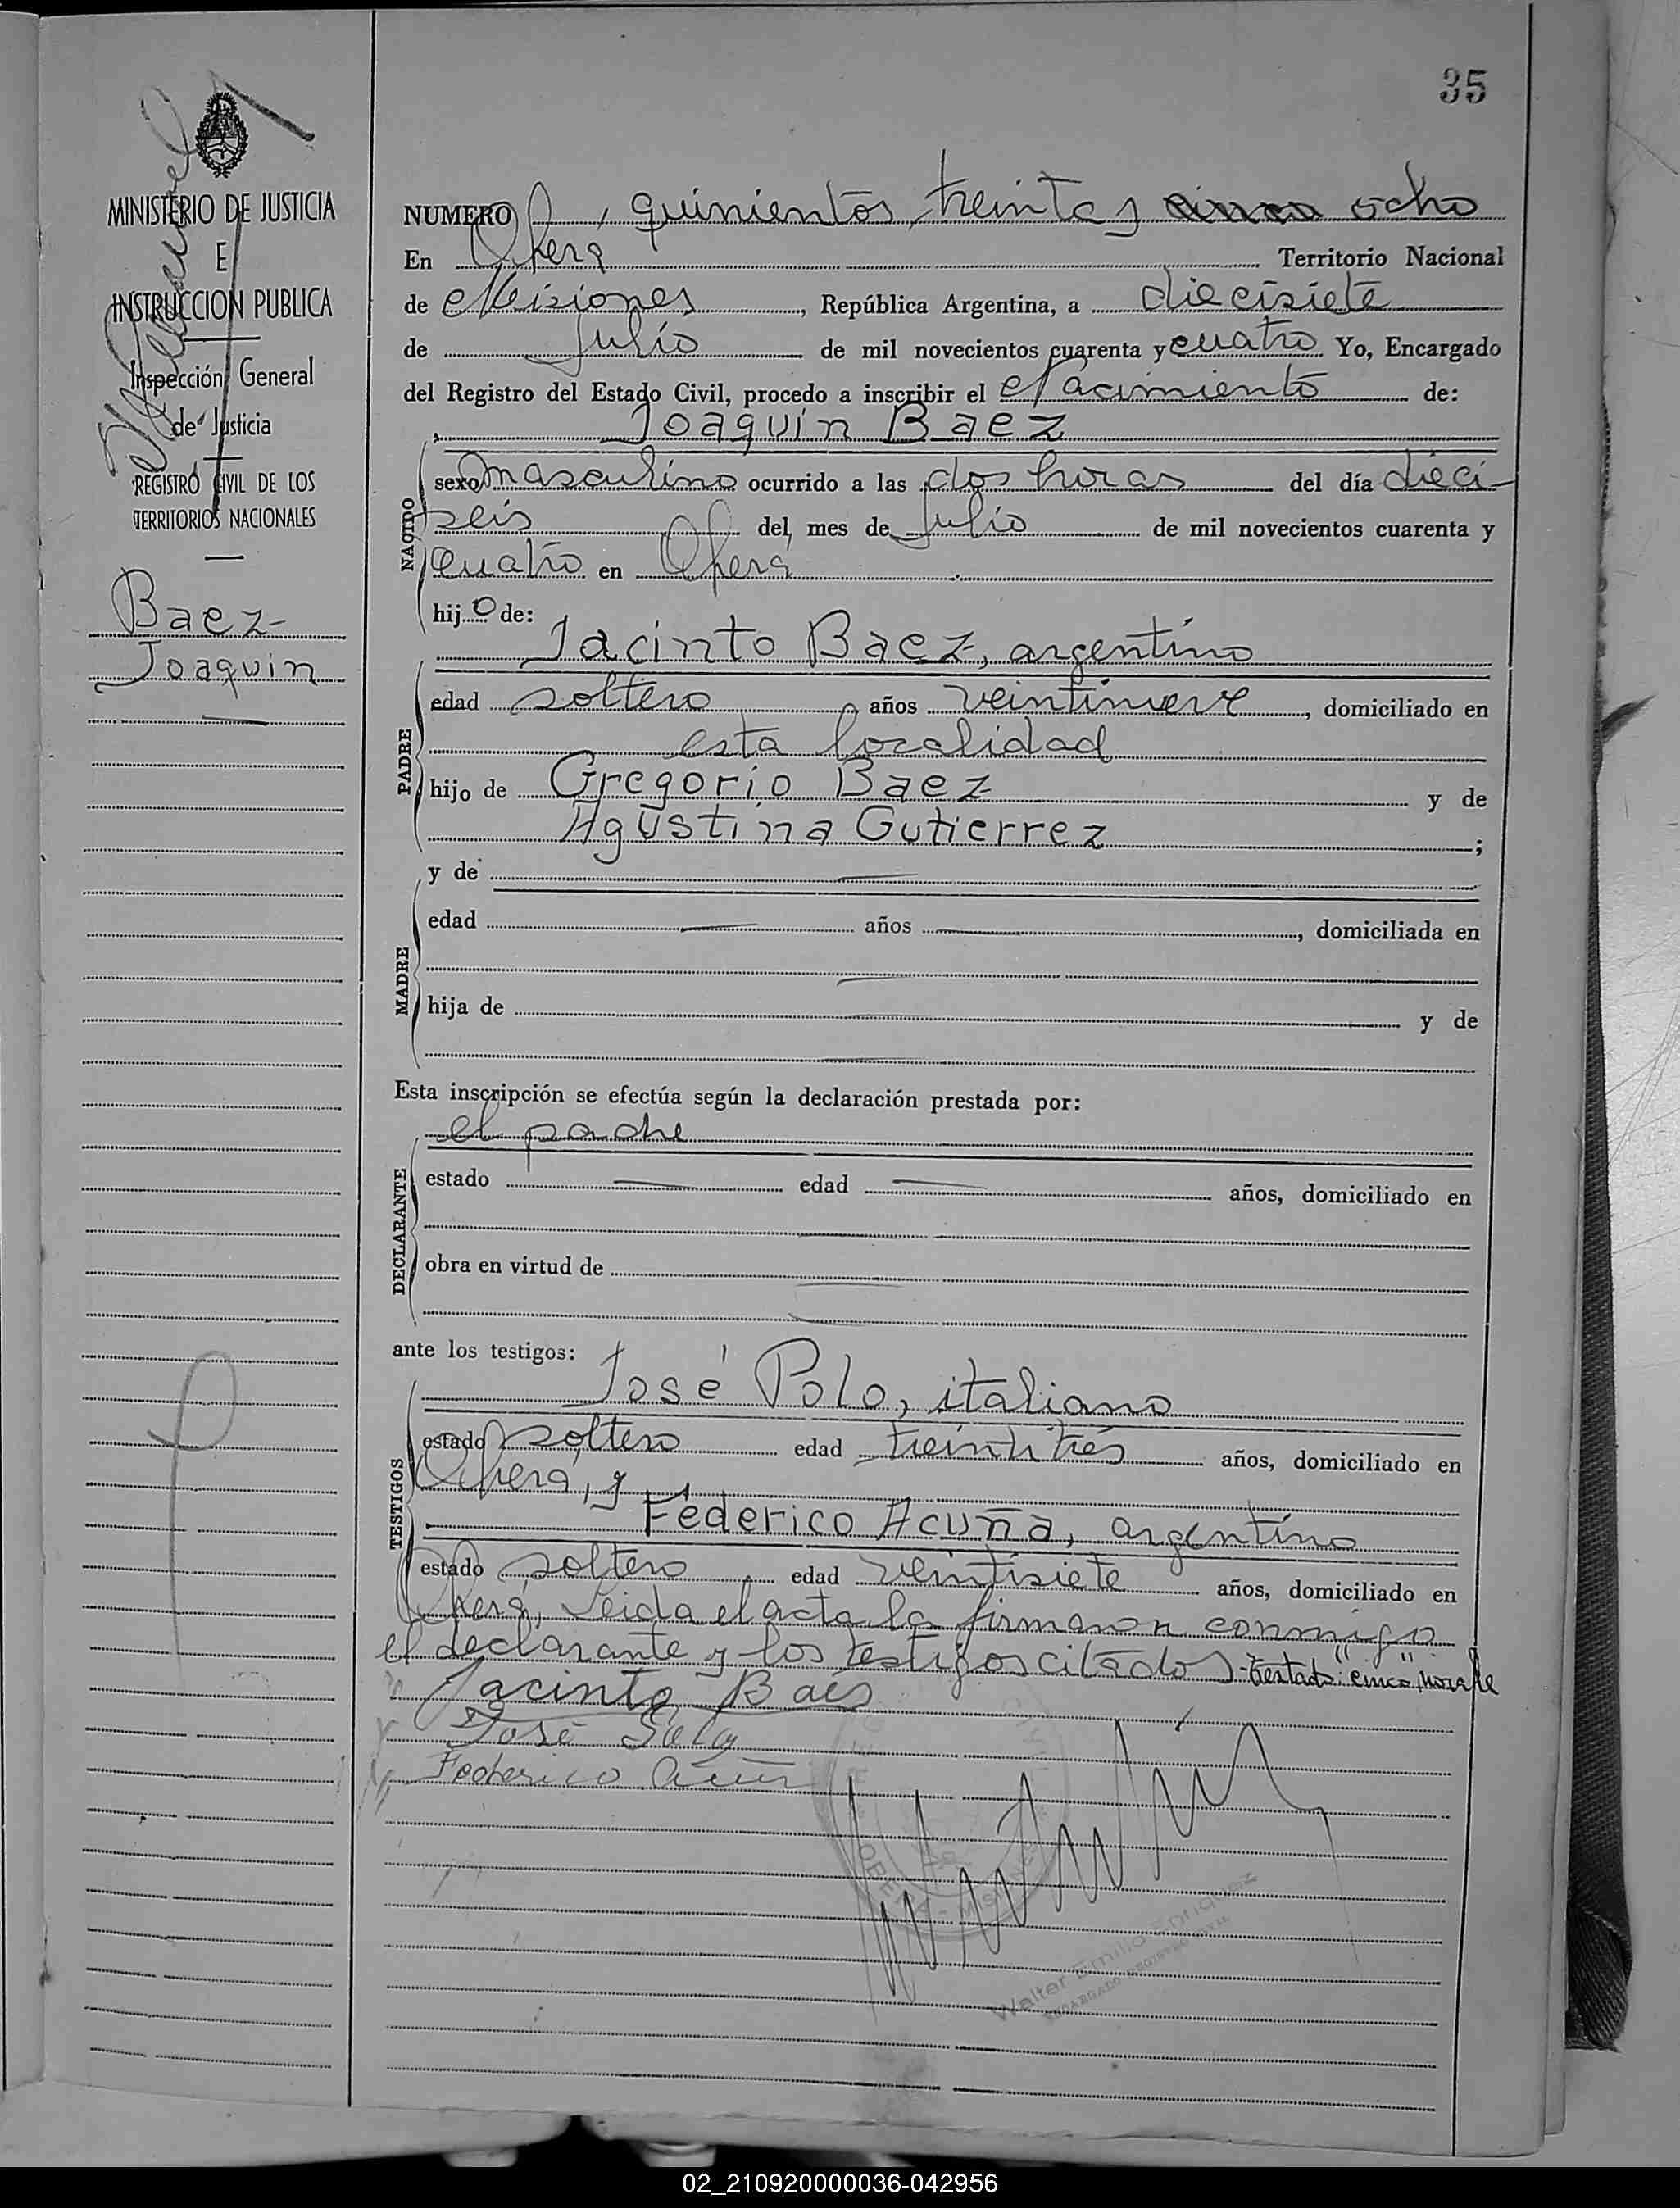 35
MINISTERIO DE JUSTICIA
E
INSTRUCCION PUBLICA
Inspección General
de Justicia
REGISTRO CIVIL DE LOS
TERRITORIOS NACIONALES
Baez
Joaquin
NUMERO quinientos treinta y cinco ocho
En Oberá Territorio Nacional
de Misiones, República Argentina, a diecisiete
de Julio de mil novecientos cuarenta y cuatro Yo, Encargado
del Registro del Estado Civil, procedo a inscribir el Nacimiento de:
Joaquin Baez
NACIDO
sexo masculino ocurrido a las dos horas del día dieci-
seis del mes de Julio de mil novecientos cuarenta y
cuatro en Oberá
hijo de:
Jacinto Baez, argentino
PADRE
edad soltero años veintinueve, domiciliado en
esta localidad
hijo de Gregorio Baez y de
Agustina Gutierrez;
MADRE
y de
edad años, domiciliada en
hija de y de
Esta inscripción se efectúa según la declaración prestada por:
el padre
DECLARANTE
estado edad años, domiciliado en
obra en virtud de
ante los testigos:
José Polo, italiano
TESTIGOS
estado soltero edad treintitrés años, domiciliado en
Oberá, y
Federico Acuña, argentino
estado soltero edad veintisiete años, domiciliado en
Oberá, Leida el acta la firmaron conmigo
el declarante y los testigos citados - testado: "cinco" no vale
Jacinto Baes
José
Federico
OBERA - MISIONES
Walter Emilio Enriquez
ENCARGADO REGISTRO CIVIL
02_210920000036-042956